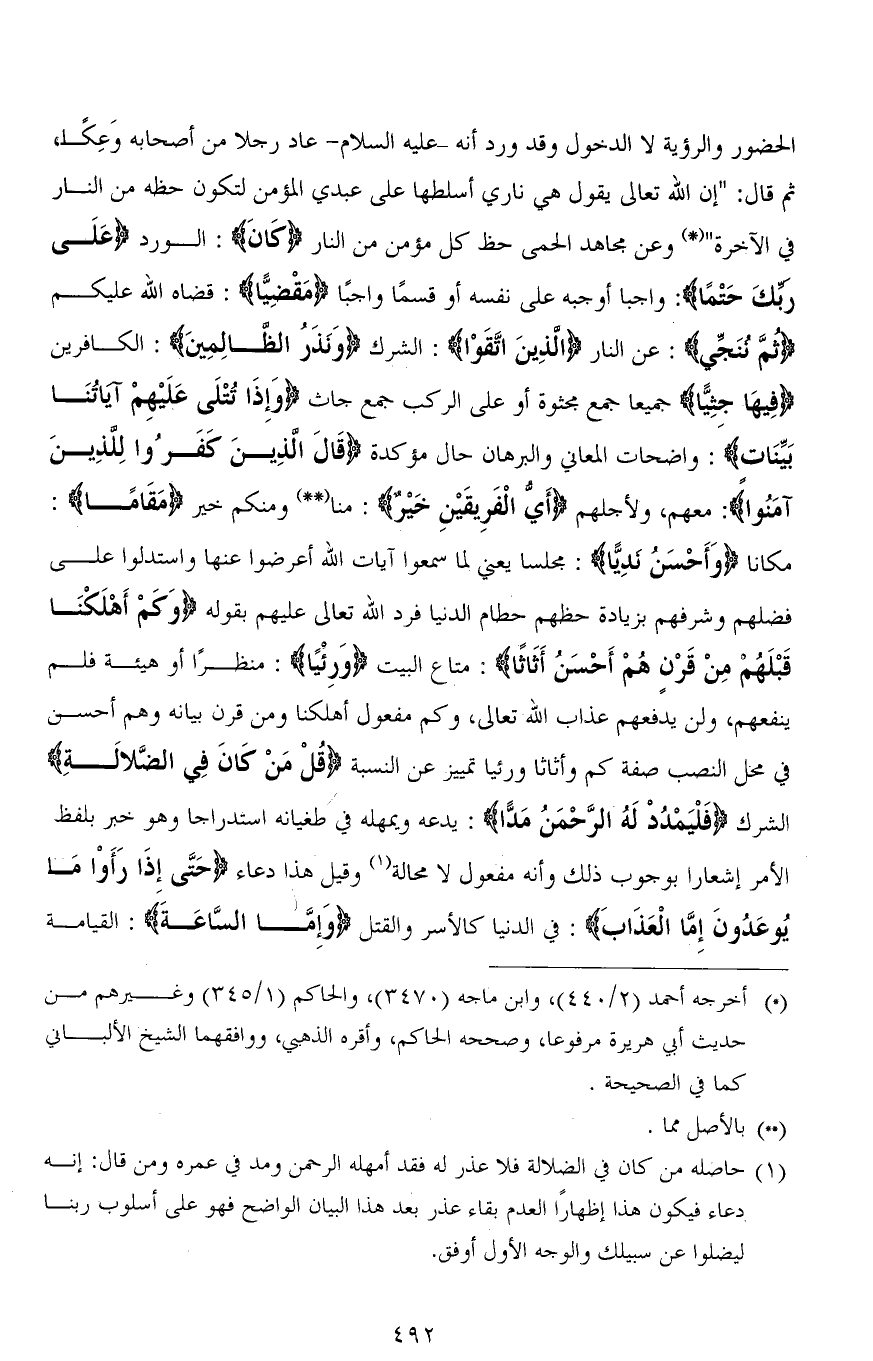 الحضور والرؤية لا الدخول وقد ورد أنه –عليه السلام– عاد رجلا من أصحابه وَعِكًا،
ثم قال: "إن الله تعالى يقول هي ناري أسلطها على عبدي المؤمن لتكون حظه من النار
في الآخرة"(*) وعن مجاهد الحمى حظ كل مؤمن من النار ﴿كَانَ﴾ : الورد ﴿عَلَى
رَبِّكَ حَتْمًا﴾: واجبا أوجبه على نفسه أو قسمًا واجبًا ﴿مَقْضِيًّا﴾ : قضاه الله عليكم
﴿ثُمَّ نُنَجِّي﴾ : عن النار ﴿الَّذِينَ اتَّقَوْا﴾ : الشرك ﴿وَنَذَرُ الظَّالِمِينَ﴾ : الكافرين
﴿فِيهَا جِثِيًّا﴾ جميعا جمع مجثوة أو على الركب جمع جاث ﴿وَإِذَا تُتْلَى عَلَيْهِمْ آيَاتُنَا
بَيِّنَاتٍ﴾ : واضحات المعاني والبرهان حال مؤكدة ﴿قَالَ الَّذِينَ كَفَرُوا لِلَّذِينَ
آمَنُوا﴾: معهم، ولأجلهم ﴿أَيُّ الْفَرِيقَيْنِ خَيْرٌ﴾ : منا(**) ومنكم خير ﴿مَقَامًا﴾ :
مكانا ﴿وَأَحْسَنُ نَدِيًّا﴾ : مجلسا يعني لما سمعوا آيات الله أعرضوا عنها واستدلوا على
فضلهم وشرفهم بزيادة حظهم حطام الدنيا فرد الله تعالى عليهم بقوله ﴿وَكَمْ أَهْلَكْنَا
قَبْلَهُمْ مِنْ قَرْنٍ هُمْ أَحْسَنُ أَثَاثًا﴾ : متاع البيت ﴿وَرِئْيًا﴾ : منظرًا أو هيئة فلم
ينفعهم، ولن يدفعهم عذاب الله تعالى، وكم مفعول أهلكنا ومن قرن بيانه وهم أحسن
في محل النصب صفة كم وأثاثا ورئيا تمييز عن النسبة ﴿قُلْ مَنْ كَانَ فِي الضَّلالَةِ﴾
الشرك ﴿فَلْيَمْدُدْ لَهُ الرَّحْمَنُ مَدًّا﴾ : يدعه ويمهله في طغيانه استدراجا وهو خبر بلفظ
الأمر إشعارا بوجوب ذلك وأنه مفعول لا محالة(١) وقيل هذا دعاء ﴿حَتَّى إِذَا رَأَوْا مَا
يُوعَدُونَ إِمَّا الْعَذَابَ﴾ : في الدنيا كالأسر والقتل ﴿وَإِمَّا السَّاعَةَ﴾ : القيامة
(*) أخرجه أحمد (٤٤٠/٢)، وابن ماجه (٣٤٧٠)، والحاكم (٣٤٥/١) وغيرهم من
حديث أبي هريرة مرفوعا، وصححه الحاكم، وأقره الذهبي، ووافقهما الشيخ الألباني
كما في الصحيحة .
(**) بالأصل مما .
(١) حاصله من كان في الضلالة فلا عذر له فقد أمهله الرحمن ومد في عمره ومن قال: إنه
دعاء فيكون هذا إظهارًا العدم بقاء عذر بعد هذا البيان الواضح فهو على أسلوب ربنا
ليضلوا عن سبيلك والوجه الأول أوفق.
٤٩٢